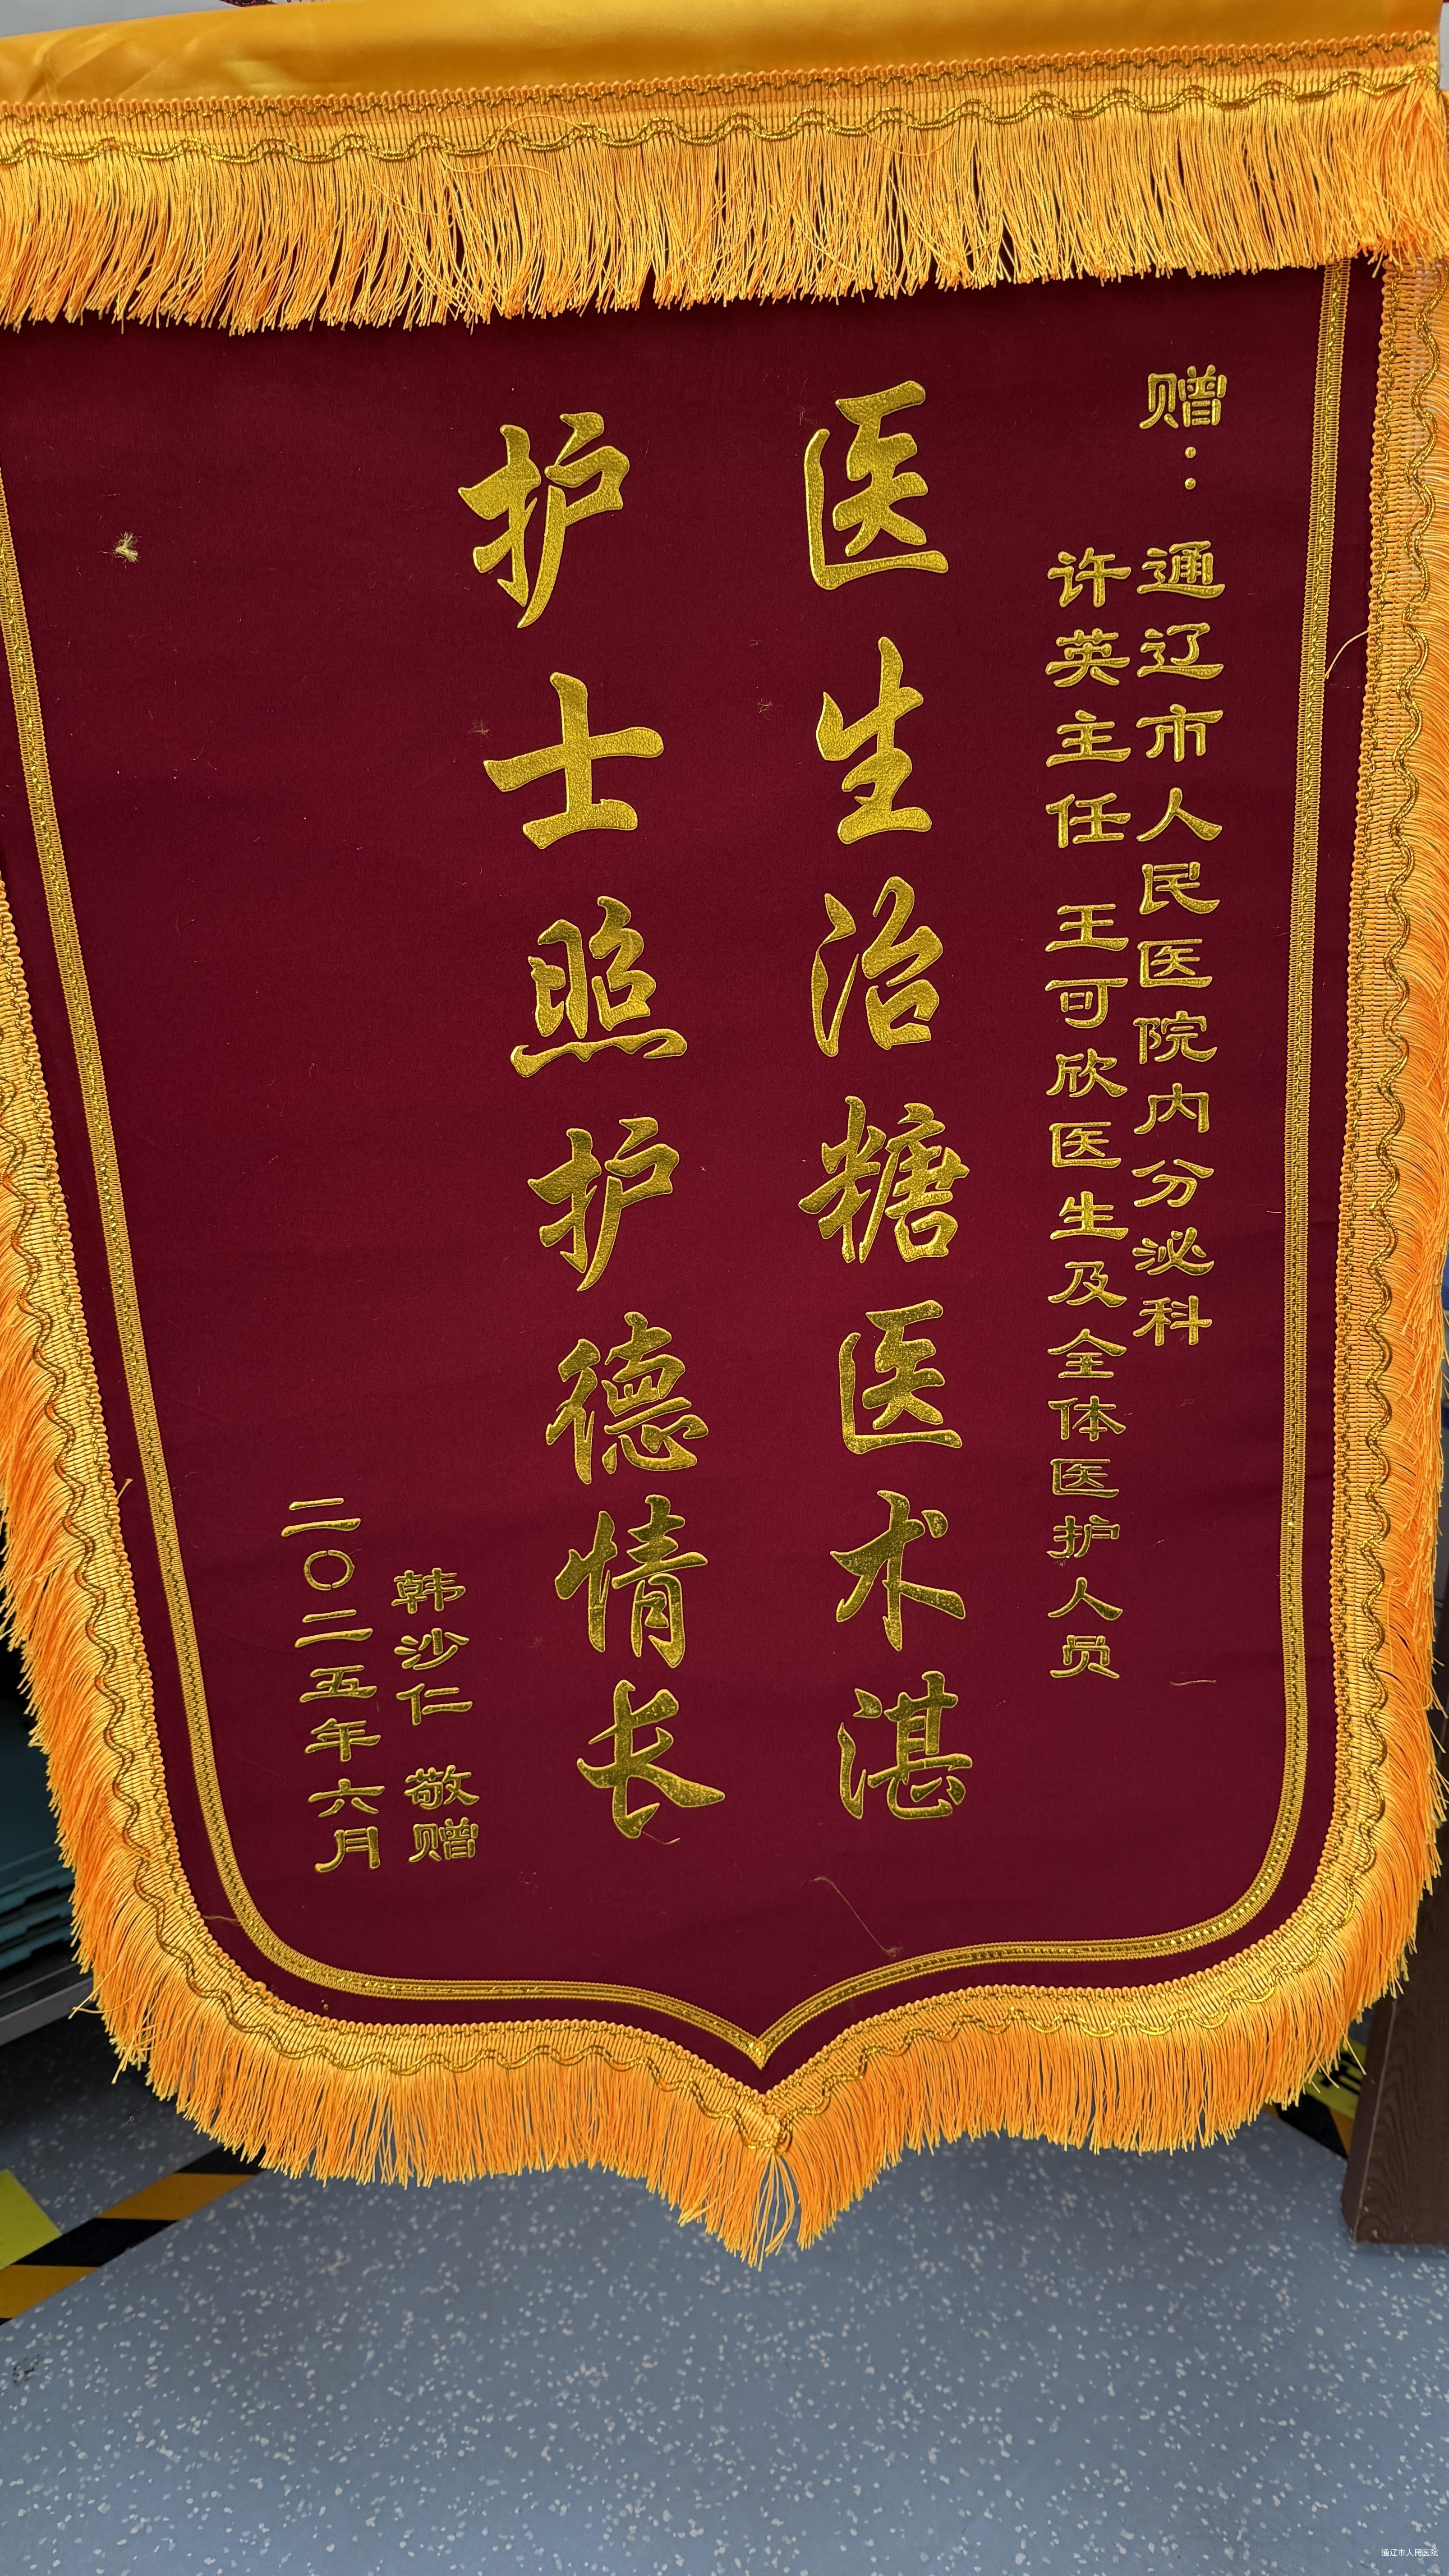 赠：通辽市人民医院内分泌科
许英主任 王可欣医生及全体医护人员
医生治糖医术湛
护士照护德情长
韩沙仁 敬赠
二〇二五年六月
通辽市人民医院